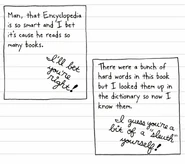 Man, that Encyclopedia
is so smart and I bet
it's cause he reads so
many books.
I'll bet
you're
right!
There were a bunch of
hard words in this book
but I looked them up in
the dictionary so now I
know them.
I guess you're a
bit of a "sleuth"
yourself!